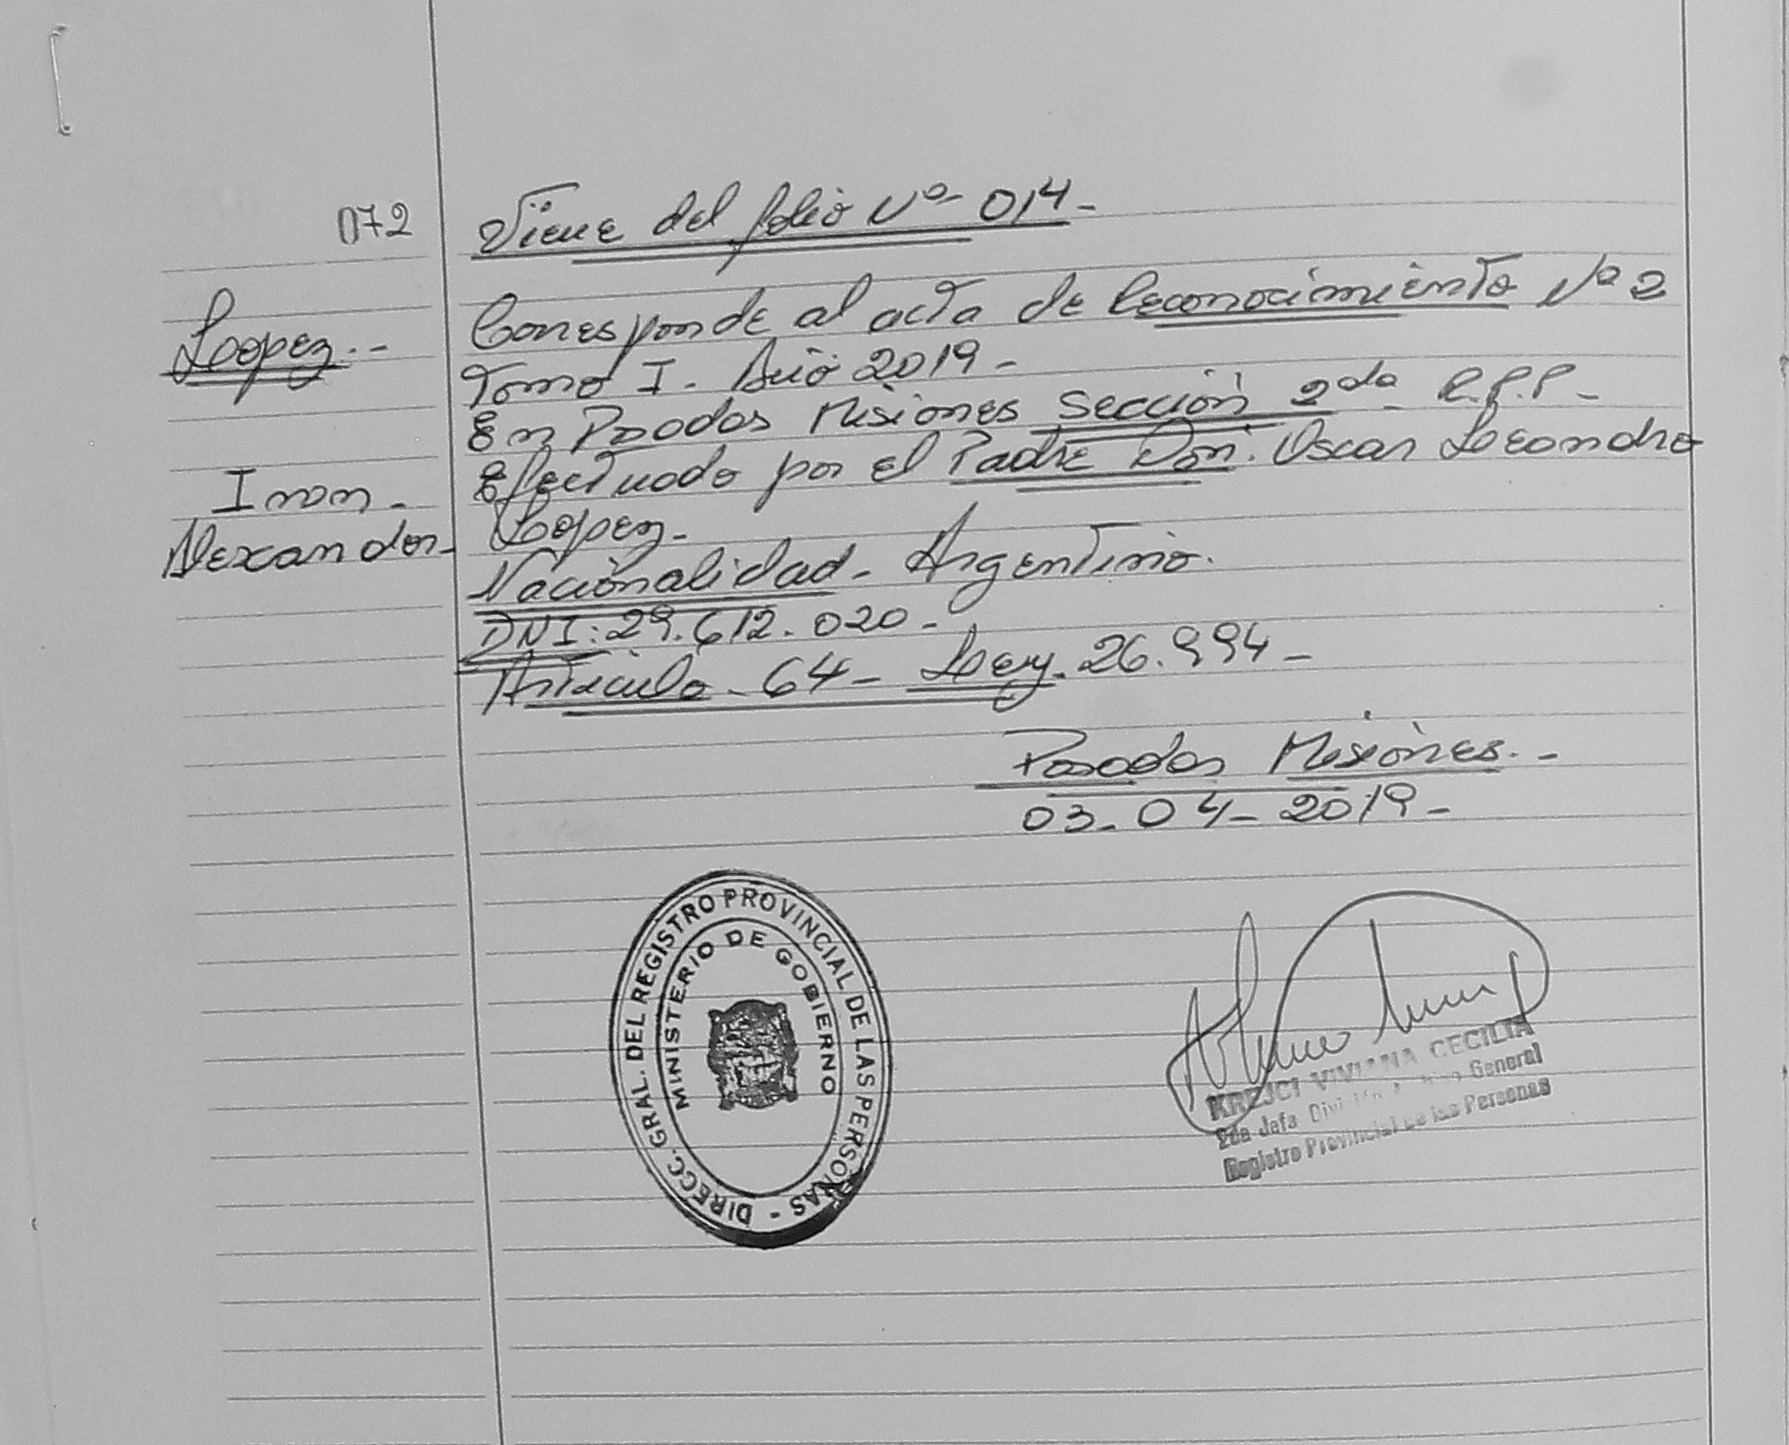 072
Lopez.--
Ivan.
Alexander-
Viene del folio Nº 014-
Corresponde al acta de Reconocimiento Nº 2
Tomo I. Año 2019-
En Posadas Misiones Sección 2da R.P.P-
Efectuado por el Padre Don. Oscar Leandro
Lopez.
Nacionalidad- Argentino.
DNI: 29.612.020-
Articulo- 64- Ley. 26.994-
Posadas Misiones.-
03-04-2019-
DIRECC. GRAL. DEL REGISTRO PROVINCIAL DE LAS PERSONAS -
MINISTERIO DE GOBIERNO
KREJCI VIVIANA CECILIA
2da Jefa General
Registro Provincial de las Personas